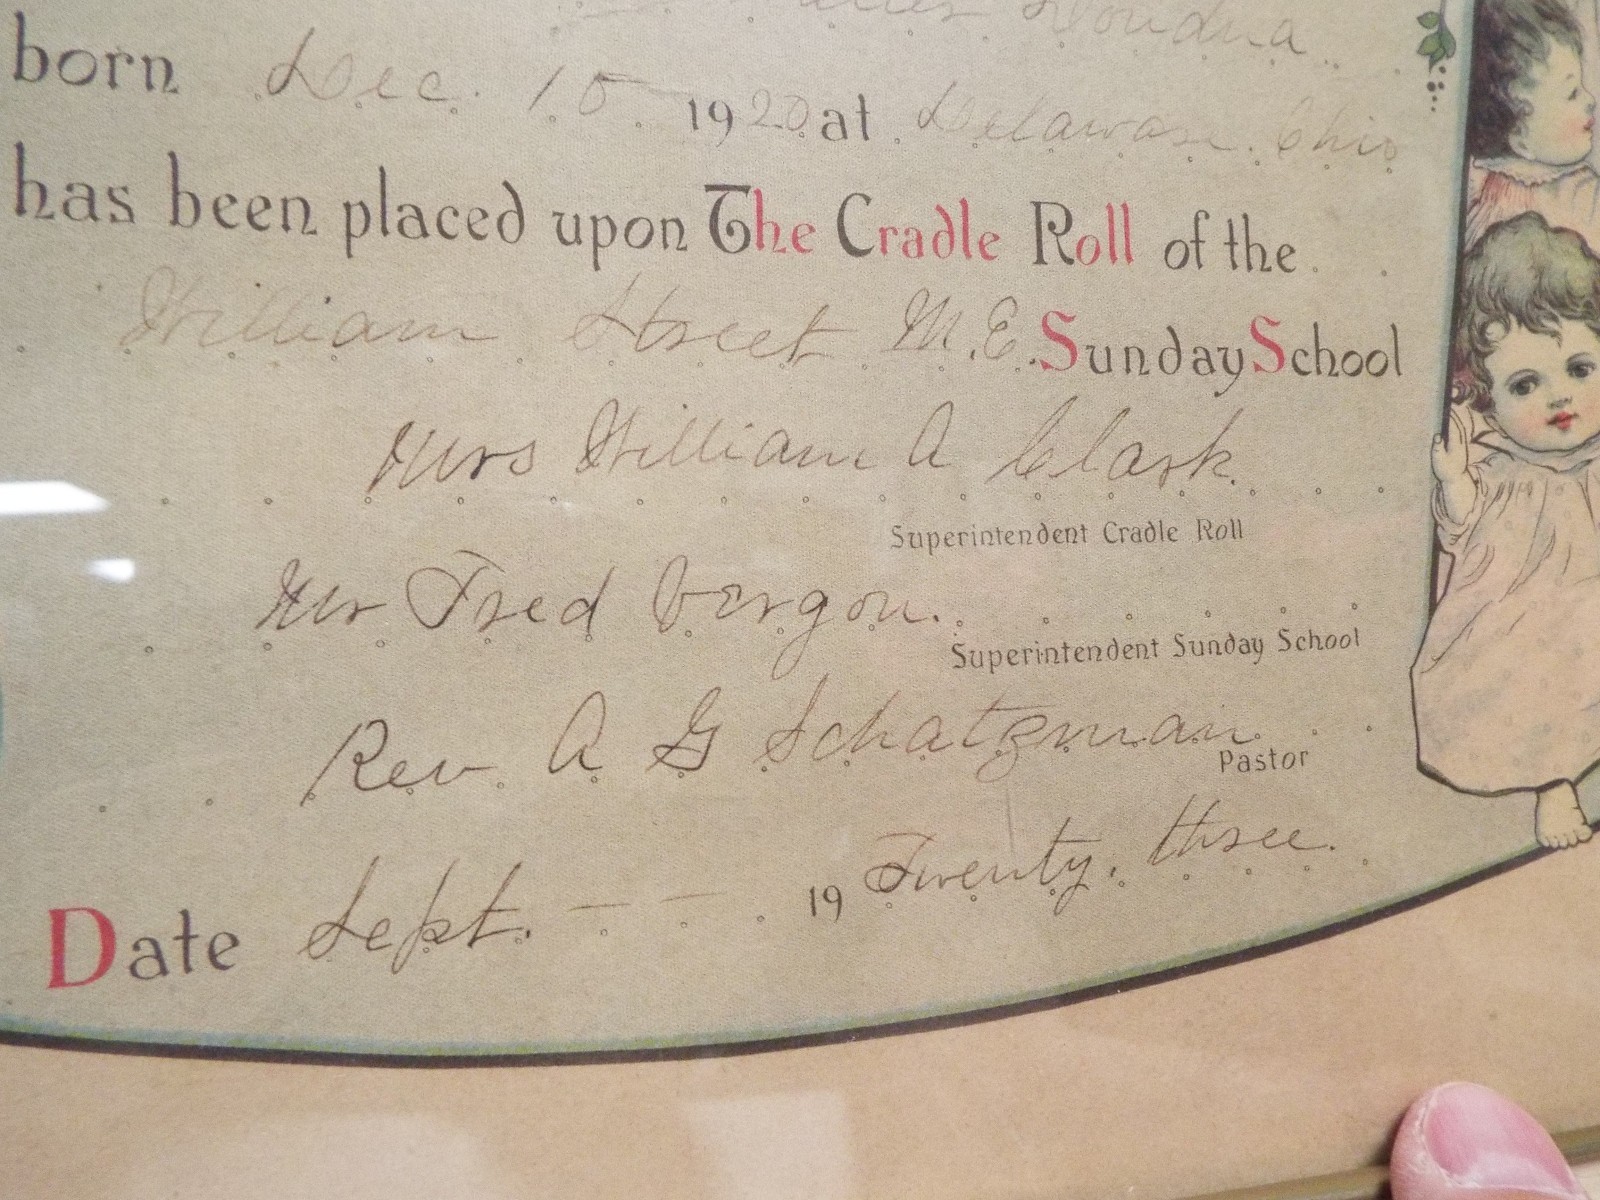 Doudna
born Dec. 15 1920 at Delaware. Ohio
has been placed upon The Cradle Roll of the
William Street M.E. Sunday School
Mrs William A Clark.
Superintendent Cradle Roll
Mr Fred Vergon.
Superintendent Sunday School
Rev. A G Schatzman
Pastor
Date Sept. - - 19 Twenty. three.